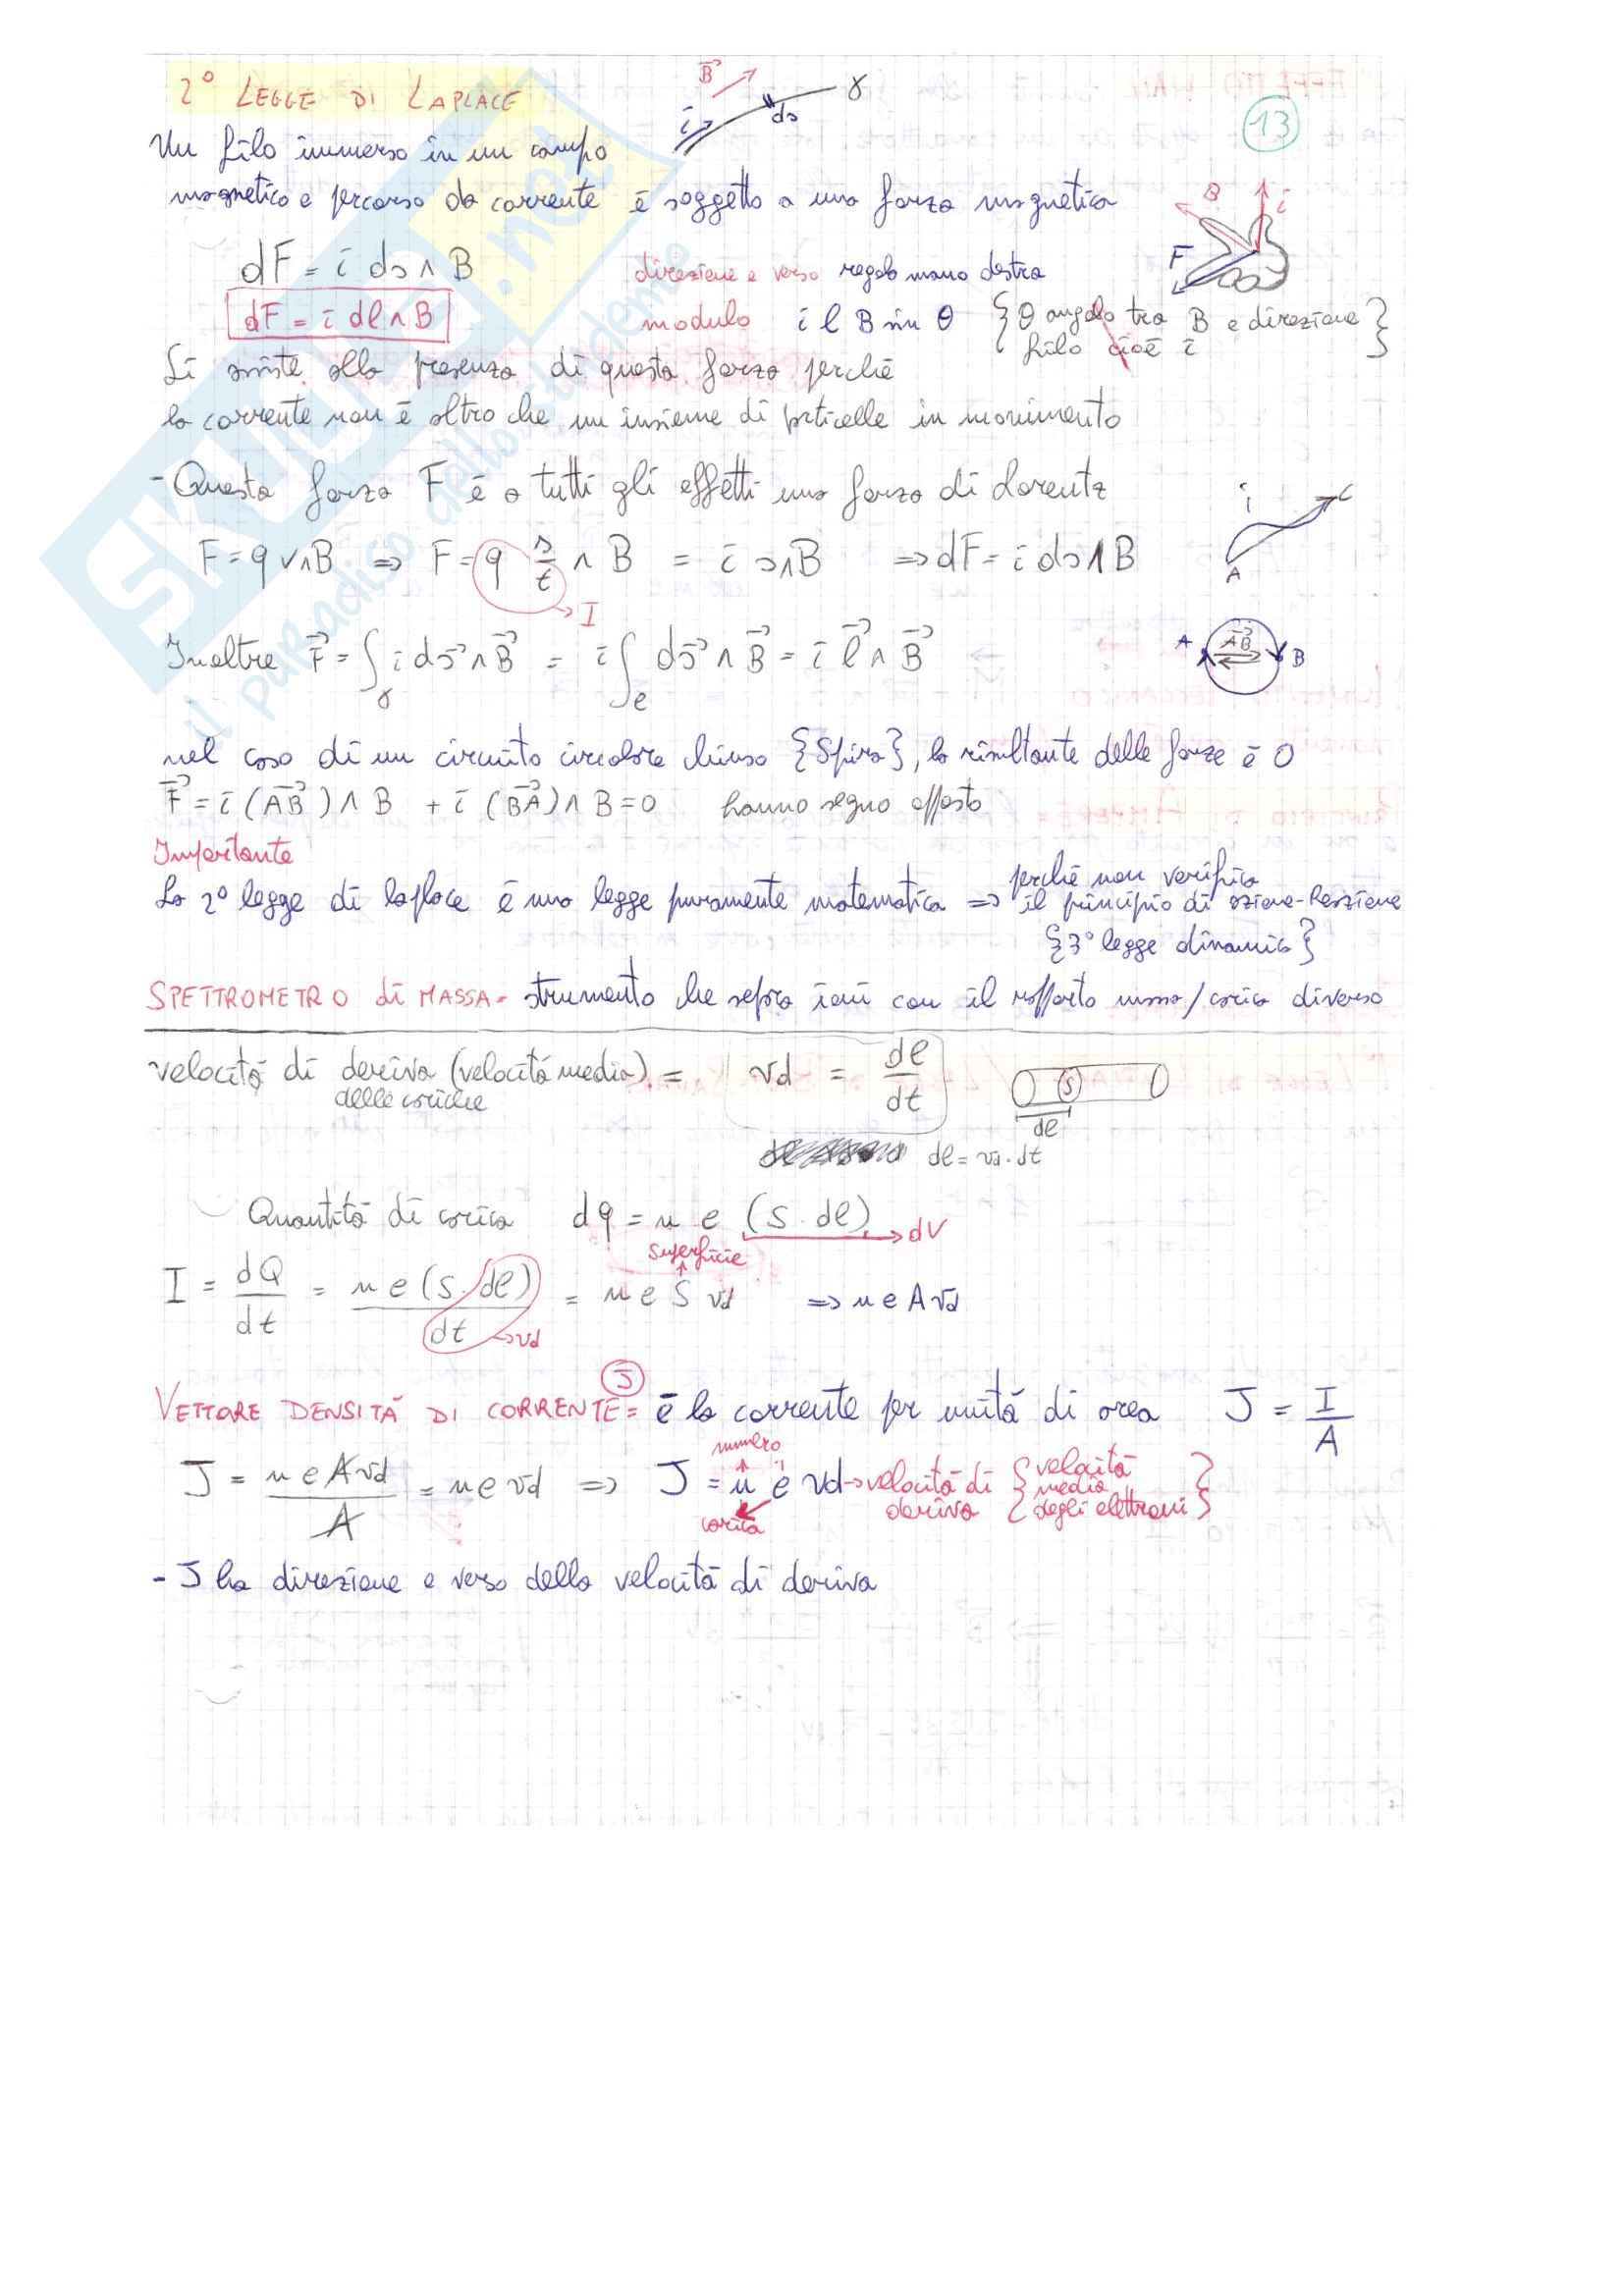 2° LEGGE DI LAPLACE
B i ds γ
13
Un filo immerso in un campo
magnetico e percorso da corrente è soggetto a una forza magnetica
B i F
dF = i ds ∧ B direzione e verso regola mano destra
dF = i dl ∧ B modulo i l B sin θ {θ angolo tra B e direzione
filo cioè i}
Si assiste alla presenza di questa forza perché
la corrente non è altro che un insieme di prticelle in movimento
- Questa forza F è a tutti gli effetti una forza di Lorentz
i C A
F = q v ∧ B ⇒ F = q s/t ∧ B = i s ∧ B ⇒ dF = i ds ∧ B
→ I
Inoltre F⃗ = ∫γ i ds⃗ ∧ B⃗ = i ∫e ds⃗ ∧ B⃗ = i l⃗ ∧ B⃗
A AB⃗ B
nel caso di un circuito circolare chiuso {Spira}, la risultante delle forze è 0
F⃗ = i (AB⃗) ∧ B + i (BA⃗) ∧ B = 0 hanno segno opposto
Importante
La 2° legge di laplace è una legge puramente matematica ⇒ perché non verifica
il principio di azione-Reazione
{3° legge dinamica}
SPETTROMETRO di MASSA = strumento che separa ioni con il rapporto massa/carica diverso
velocità di deriva (velocità media) = vd = dl/dt
delle cariche
S dl
dl = vd · dt
Quantità di carica dq = n e (S · dl) → dV
superficie
I = dQ/dt = n e (S · dl)/dt = n e S vd ⇒ n e A vd
→ vd
J
VETTORE DENSITÀ DI CORRENTE = è la corrente per unità di area J = I/A
numero
J = n e A vd/A = n e vd ⇒ J = n e vd → velocità di deriva {velocità media degli elettroni}
carica
- J ha direzione e verso della velocità di deriva
SKUOLA.net
il paradiso dello studente